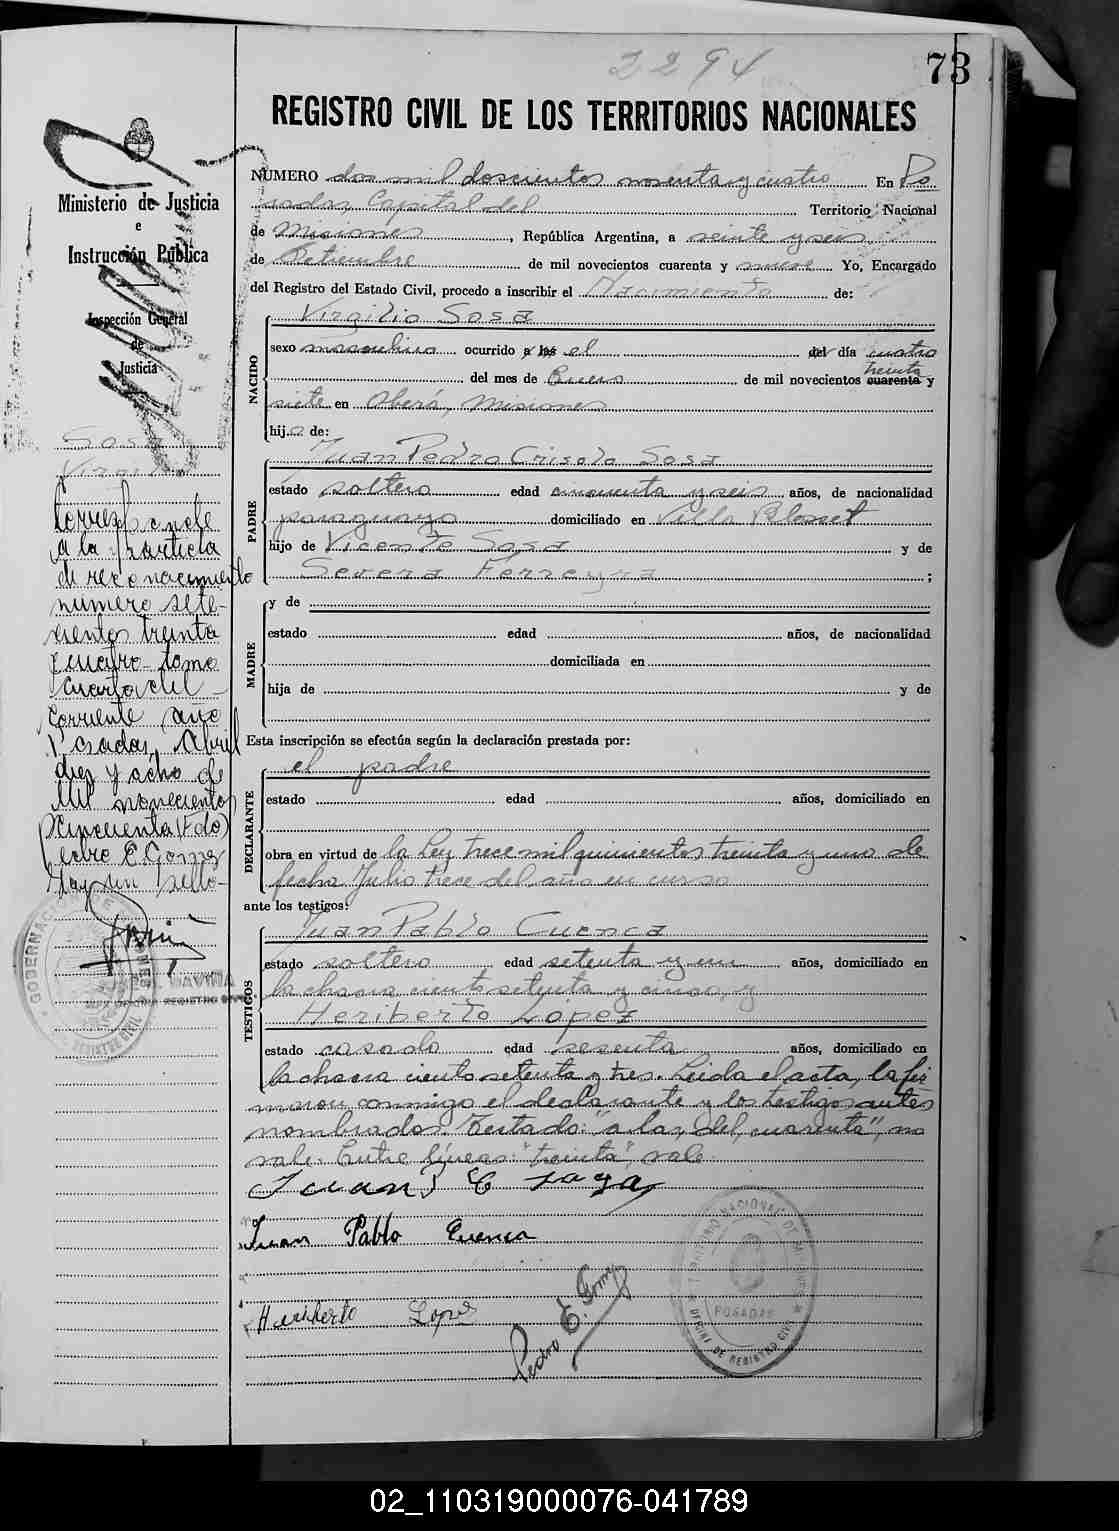 2294
73
REGISTRO CIVIL DE LOS TERRITORIOS NACIONALES
NUMERO dos mil doscientos noventa y cuatro En Po
sadas, Capital del Territorio Nacional
de Misiones, República Argentina, a veinte y seis
de Setiembre de mil novecientos cuarenta y nueve Yo, Encargado
del Registro del Estado Civil, procedo a inscribir el Nacimiento de:
NACIDO
Virgilio Sosa
sexo masculino ocurrido a las el del día cuatro
treinta
del mes de Enero de mil novecientos cuarenta y
siete en Oberá, Misiones
hijo de:
PADRE
Juan Pedro Crisolo Sosa
estado soltero edad cincuenta y seis años, de nacionalidad
paraguayo domiciliado en Villa Blosset
hijo de Vicente Sosa y de
Severa Ferreyra ;
MADRE
y de
estado edad años, de nacionalidad
domiciliada en
hija de y de
Esta inscripción se efectúa según la declaración prestada por:
DECLARANTE
el padre
estado edad años, domiciliado en
obra en virtud de la Ley trece mil quinientos treinta y uno de
fecha Julio trece del año en curso
ante los testigos:
TESTIGOS
Juan Pablo Cuenca
estado soltero edad setenta y un años, domiciliado en
la chacra ciento setenta y cinco, y
Heriberto López
estado casado edad sesenta años, domiciliado en
la chacra ciento setenta y tres. Leida el acta, la fir
maron conmigo el declarante y los testigos antes
nombrados. Testado: "a las, del, cuarenta", no
vale. Entre líneas: "treinta", vale.
Juan P C Sosa
Juan Pablo Cuenca
Heriberto Lopez
Pedro E. Gomez
TERRITORIO NACIONAL DE MISIONES
POSADAS
OFICINA DE REGISTRO CIVIL
Ministerio de Justicia
e
Instrucción Pública
Inspección General
de
Justicia
Sosa
Virgilio
Corresponde
a la partida
de reconocimiento
numero sete-
cientos treinta
y cuatro tomo
cuarto del
corriente año
Posadas, Abril
diez y ocho de
Mil novecientos
cincuenta (Fdo)
Pedro E. Gomez
Hay un sello-
GOBERNACION DE MISIONES
REGISTRO CIVIL
02_110319000076-041789